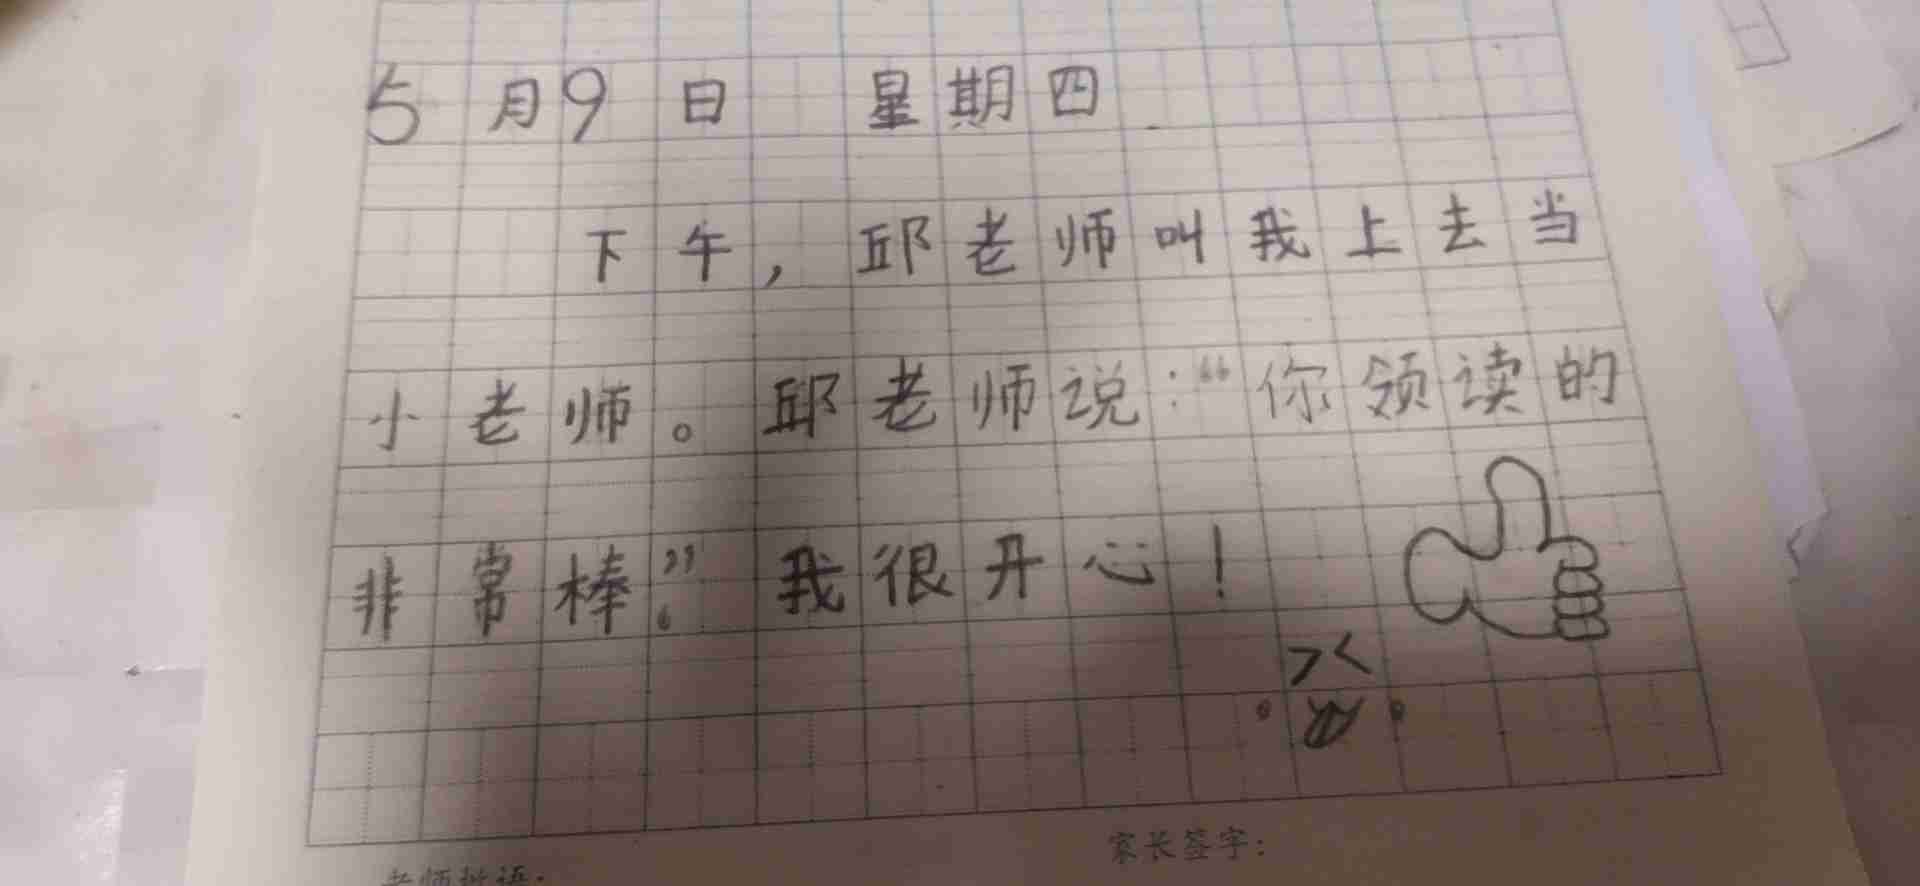 5月9日 星期四
下午，邱老师叫我上去当
小老师。邱老师说：“你领读的
非常棒。”我很开心！
家长签字：
老师批语：